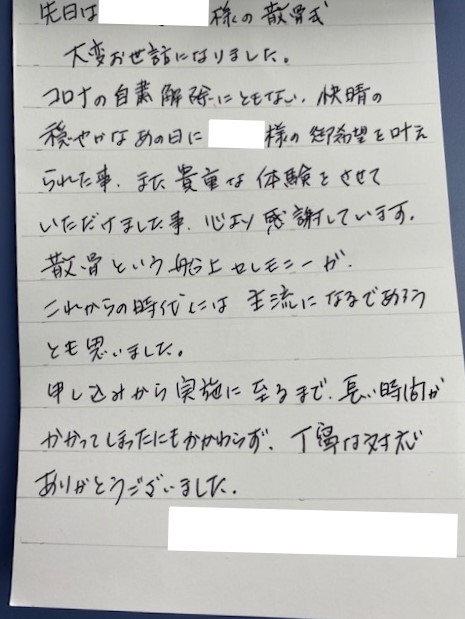 先日は 様の散骨式
大変お世話になりました。
コロナの自粛解除にともない、快晴の
穏やかなあの日に 様の御希望を叶え
られた事、また貴重な体験をさせて
いただけました事、心より感謝しています。
散骨という船上セレモニーが、
これからの時代には主流になるであろう
とも思いました。
申し込みから実施に至るまで、長い時間が
かかってしまったにもかかわらず、丁寧な対応
ありがとうございました。